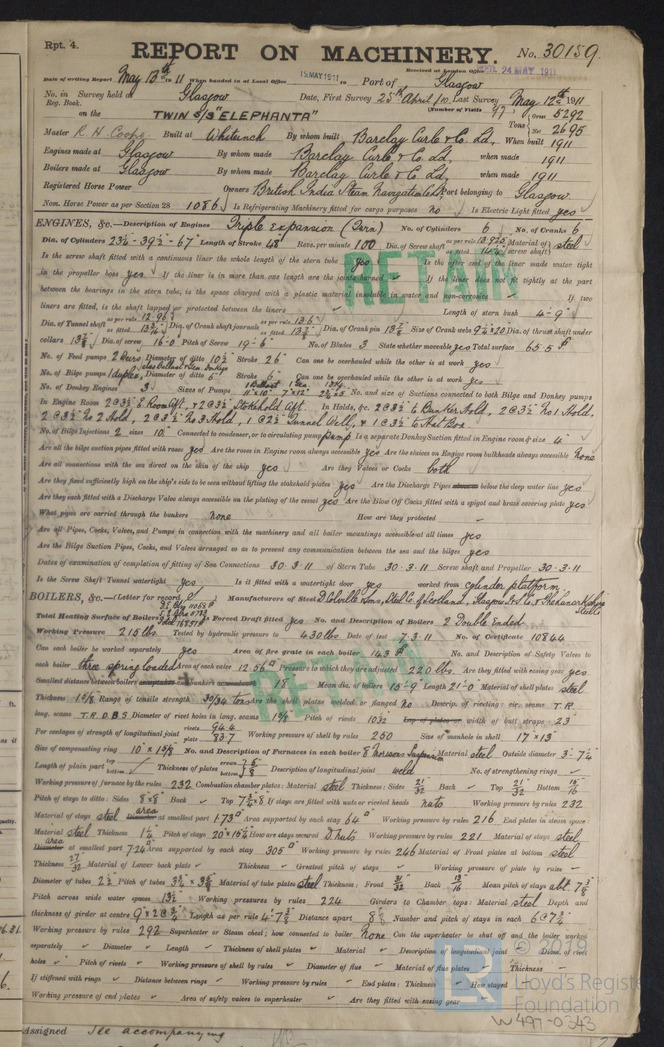 Rpt. 4.
REPORT ON MACHINERY. No. 30159.
Received at London Office 24 MAY 1911
Date of writing Report May 13th 1911 When handed in at Local Office 15 MAY 1911 Port of Glasgow
No. in Survey held at Glasgow Date, First Survey 25th April 10 Last Survey May 12th 1911
Reg. Book. (Number of Visits 97)
on the TWIN S/S "ELEPHANTA" Tons Gross 5292 Net 2695
Master R H Cooke Built at Whiteinch By whom built Barclay Curle & Co. Ld. When built 1911
Engines made at Glasgow By whom made Barclay Curle & Co Ld. when made 1911
Boilers made at Glasgow By whom made Barclay Curle & Co Ld. when made 1911
Registered Horse Power Owners British India Steam Navigation Co Ld Port belonging to Glasgow
Nom. Horse Power as per Section 28 1086 Is Refrigerating Machinery fitted for cargo purposes no Is Electric Light fitted yes
ENGINES, &c.—Description of Engines Triple expansion (Twin) No. of Cylinders 6 No. of Cranks 6
Dia. of Cylinders 23½ - 39½ - 67" Length of Stroke 48" Revs. per minute 100 Dia. of Screw shaft as per rule 13.925 Material of screw shaft steel
Is the screw shaft fitted with a continuous liner the whole length of the stern tube yes Is the after end of the liner made water tight
in the propeller boss yes If the liner is in more than one length are the joints burned If the liner does not fit tightly at the part
between the bearings in the stern tube, is the space charged with a plastic material insoluble in water and non-corrosive If two
liners are fitted, is the shaft lapped or protected between the liners Length of stern bush 4'-9"
Dia. of Tunnel shaft as per rule 12.96 as fitted Dia. of Crank shaft journals as per rule 13.6 as fitted Dia. of Crank pin Size of Crank webs Dia. of thrust shaft under
collars Dia. of screw 16-0 Pitch of Screw 19-6 No. of Blades 3 State whether moveable yes Total surface 65.5
No. of Feed pumps Diameter of ditto 10½ Stroke 26" Can one be overhauled while the other is at work yes
No. of Bilge pumps Diameter of ditto 6" Stroke 6" Can one be overhauled while the other is at work yes
No. of Donkey Engines 3 Sizes of Pumps No. and size of Suctions connected to both Bilge and Donkey pumps
In Engine Room 2 @ 3½ E Room Aft, & 2 @ 3½ Stokehold Aft. In Holds, &c. 2 @ 3½ to Bunker Hold, 2 @ 3½ No 1 Hold,
2 @ 3½ No 2 Hold, 2 @ 3½ No 3 Hold, 1 @ 2½ Tunnel Well, & 1 @ 3½ to Hot Box.
No. of Bilge Injections 2 sizes 10" Connected to condenser, or to circulating pump pump Is a separate Donkey Suction fitted in Engine room & size 4"
Are all the bilge suction pipes fitted with roses yes Are the roses in Engine room always accessible yes Are the sluices on Engine room bulkheads always accessible none
Are all connections with the sea direct on the skin of the ship yes Are they Valves or Cocks both
Are they fixed sufficiently high on the ship's side to be seen without lifting the stokehold plates yes Are the Discharge Pipes below the deep water line yes
Are they each fitted with a Discharge Valve always accessible on the plating of the vessel yes Are the Blow Off Cocks fitted with a spigot and brass covering plate yes
What pipes are carried through the bunkers none How are they protected -
Are all Pipes, Cocks, Valves, and Pumps in connection with the machinery and all boiler mountings accessible at all times yes
Are the Bilge Suction Pipes, Cocks, and Valves arranged so as to prevent any communication between the sea and the bilges yes
Dates of examination of completion of fitting of Sea Connections 30.3.11 of Stern Tube 30.3.11 Screw shaft and Propeller 30.3.11
Is the Screw Shaft Tunnel watertight yes Is it fitted with a watertight door yes worked from cylinder platform
BOILERS, &c.—(Letter for record) Manufacturers of Steel D Colville & Sons, Steel C. of Scotland, Glasgow
Total Heating Surface of Boilers Is Forced Draft fitted yes No. and Description of Boilers 2 Double Ended
Working Pressure 215 lbs. Tested by hydraulic pressure to 430 lbs. Date of test 7.3.11 No. of Certificate 10844
Can each boiler be worked separately yes Area of fire grate in each boiler 143 No. and Description of Safety Valves to
each boiler three spring loaded Area of each valve 12.56 Pressure to which they are adjusted 220 lbs. Are they fitted with easing gear yes
Smallest distance between boilers and bunkers 18" Mean dia. of boilers 15-9 Length 21-0 Material of shell plates steel
Thickness Range of tensile strength 30/34 tons Are the shell plates welded or flanged no Descrip. of riveting: cir. seams T.R.
long. seams T.R.D.B.S Diameter of rivet holes in long. seams Pitch of rivets lap of plates or width of butt straps 23
Per centages of strength of longitudinal joint rivets 94.4 plate 83.7 Working pressure of shell by rules 250 Size of manhole in shell 17" x 13"
Size of compensating ring No. and Description of Furnaces in each boiler 8 Morisons Suspension Material steel Outside diameter
Length of plain part top bottom Thickness of plates crown bottom Description of longitudinal joint weld No. of strengthening rings
Working pressure of furnace by the rules 232 Combustion chamber plates: Material steel Thickness: Sides 21/32 Back Top 21/32 Bottom
Pitch of stays to ditto: Sides 8"x8" Back Top If stays are fitted with nuts or riveted heads nuts Working pressure by rules 232
Material of stays steel area at smallest part 1.73 Area supported by each stay 64 Working pressure by rules 216 End plates in steam space
Material steel Thickness Pitch of stays How are stays secured D nuts Working pressure by rules 221 Material of stays steel
area at smallest part Area supported by each stay 305 Working pressure by rules 246 Material of Front plates at bottom steel
Thickness 27/32 Material of Lower back plate Thickness Greatest pitch of stays Working pressure of plate by rules
Diameter of tubes 2½ Pitch of tubes Material of tube plates steel Thickness: Front Back Mean pitch of stays
Pitch across wide water spaces 13½ Working pressures by rules 224 Girders to Chamber tops: Material steel Depth and
thickness of girder at centre Length as per rule Distance apart Number and pitch of stays in each
Working pressure by rules 292 Superheater or Steam chest; how connected to boiler none Can the superheater be shut off and the boiler worked
separately Diameter Length Thickness of shell plates Material Description of longitudinal joint Diam. of rivet
holes Pitch of rivets Working pressure of shell by rules Diameter of flue Material of flue plates Thickness
If stiffened with rings Distance between rings Working pressure by rules End plates: Thickness How stayed
Working pressure of end plates Area of safety valves to superheater Are they fitted with easing gear
RETAIN
RETAIN
© 2019
Lloyd's Register
Foundation
W497-0343
Assigned See accompanying